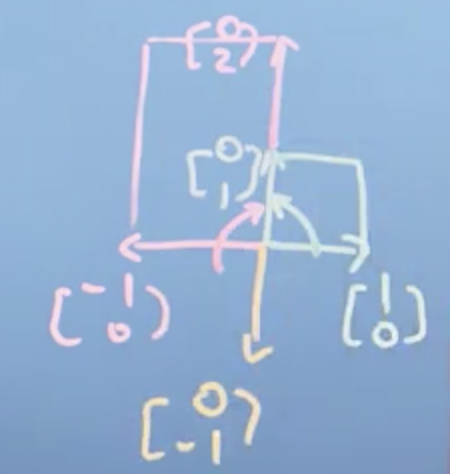 [0
2]
[0
1]
[-1
0]
[1
0]
[0
-1]